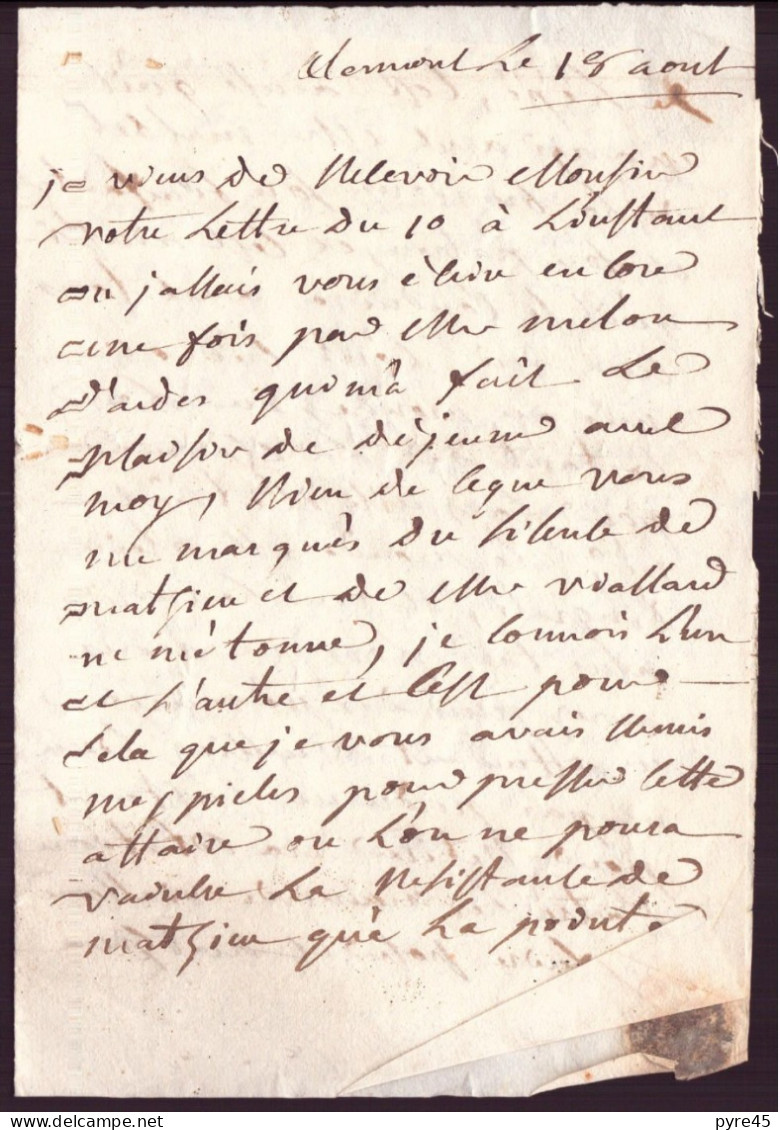 Clermont Le 18 aout
je viens de Recevoir Monsieur
votre Lettre du 10 à Linstant
ou jallais vous ècrire encore
une fois par Mr melon
d'ardes qui m'à fait Le
plaisir de dèjeuner avec
moy, Rien de ceque vous
me marquès du silence de
mathieu et de Mr viallard
ne m'ètonne, je connois L'un
et L'autre et cest pour
cela que je vous avais Remis
mes pieces pour presser cette
affaire ou L'on ne poura
vaincre La Resistance de
mathieu què La
pyre45